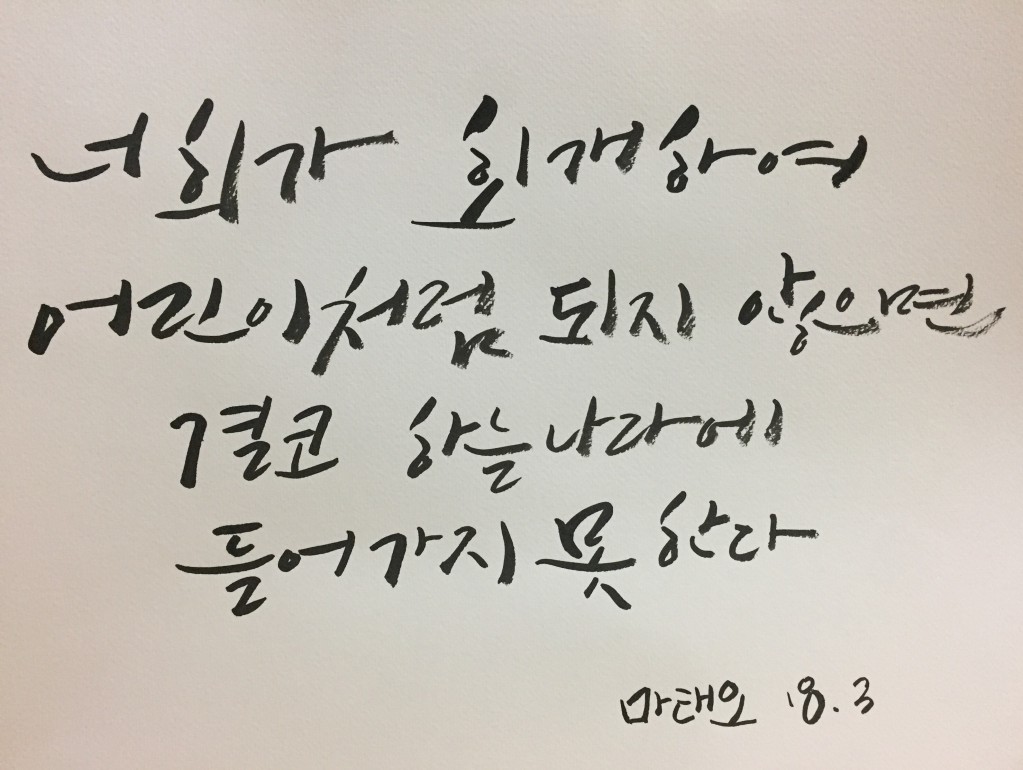 너희가 회개하여
어린이처럼 되지 않으면
결코 하늘나라에
들어가지 못한다
마태오 18.3